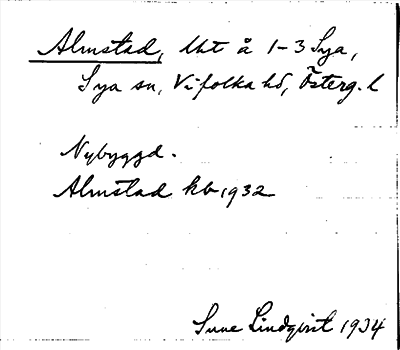 Almstad, Uht å 1-3 Sya,
Sya sn, Vifolka hd, Österg. l
Nybyggd.
Almstad kb 1932
Sune Lindqvist 1934